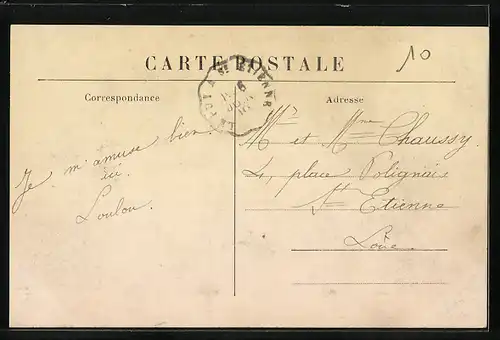 10
CARTE POSTALE
LE PUY A St ETIENNE
Correspondance
Adresse
Je m'amuse bien
ici.
Loulou.
Mr et Mme Chaussy.
4, place Polignais
St Etienne
Loire.